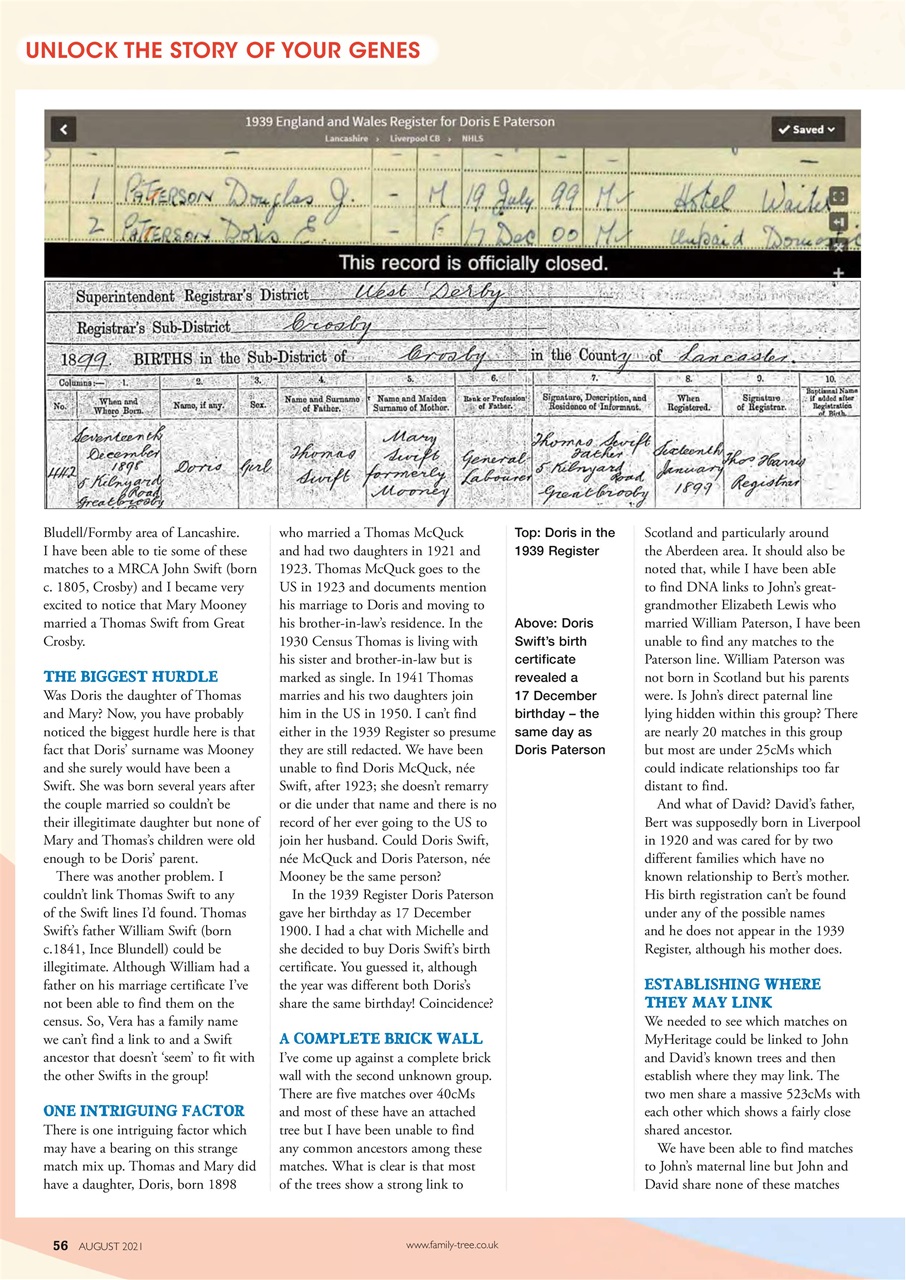 UNLOCK THE STORY OF YOUR GENES
1939 England and Wales Register for Doris E Paterson
Lancashire > Liverpool CB > NHLS
Saved
1 PATERSON Douglas J. - M 19 July 99 M Hotel Waiter
2 PATERSON Doris E. - F 17 Dec 00 M Unpaid Domestic
This record is officially closed.
Superintendent Registrar's District West Derby
Registrar's Sub-District Crosby
1899. BIRTHS in the Sub-District of Crosby in the County of Lancaster.
Columns:— 1. 2. 3. 4. 5. 6. 7. 8. 9. 10.
No. When and Where Born. Name, if any. Sex. Name and Surname of Father. Name and Maiden Surname of Mother. Rank or Profession of Father. Signature, Description, and Residence of Informant. When Registered. Signature of Registrar. Baptismal Name if added after Registration of Birth.
442 Seventeenth December 1898 5 Kilnyard Road Great Crosby Doris Girl Thomas Swift Mary Swift formerly Mooney General Labourer Thomas Swift Father 5 Kilnyard Road Great Crosby Sixteenth January 1899 Thos Harris Registrar
Bludell/Formby area of Lancashire.
I have been able to tie some of these
matches to a MRCA John Swift (born
c. 1805, Crosby) and I became very
excited to notice that Mary Mooney
married a Thomas Swift from Great
Crosby.
THE BIGGEST HURDLE
Was Doris the daughter of Thomas
and Mary? Now, you have probably
noticed the biggest hurdle here is that
fact that Doris' surname was Mooney
and she surely would have been a
Swift. She was born several years after
the couple married so couldn't be
their illegitimate daughter but none of
Mary and Thomas's children were old
enough to be Doris' parent.
There was another problem. I
couldn't link Thomas Swift to any
of the Swift lines I'd found. Thomas
Swift's father William Swift (born
c.1841, Ince Blundell) could be
illegitimate. Although William had a
father on his marriage certificate I've
not been able to find them on the
census. So, Vera has a family name
we can't find a link to and a Swift
ancestor that doesn't 'seem' to fit with
the other Swifts in the group!
ONE INTRIGUING FACTOR
There is one intriguing factor which
may have a bearing on this strange
match mix up. Thomas and Mary did
have a daughter, Doris, born 1898
who married a Thomas McQuck
and had two daughters in 1921 and
1923. Thomas McQuck goes to the
US in 1923 and documents mention
his marriage to Doris and moving to
his brother-in-law's residence. In the
1930 Census Thomas is living with
his sister and brother-in-law but is
marked as single. In 1941 Thomas
marries and his two daughters join
him in the US in 1950. I can't find
either in the 1939 Register so presume
they are still redacted. We have been
unable to find Doris McQuck, née
Swift, after 1923; she doesn't remarry
or die under that name and there is no
record of her ever going to the US to
join her husband. Could Doris Swift,
née McQuck and Doris Paterson, née
Mooney be the same person?
In the 1939 Register Doris Paterson
gave her birthday as 17 December
1900. I had a chat with Michelle and
she decided to buy Doris Swift's birth
certificate. You guessed it, although
the year was different both Doris's
share the same birthday! Coincidence?
A COMPLETE BRICK WALL
I've come up against a complete brick
wall with the second unknown group.
There are five matches over 40cMs
and most of these have an attached
tree but I have been unable to find
any common ancestors among these
matches. What is clear is that most
of the trees show a strong link to
Top: Doris in the
1939 Register
Above: Doris
Swift's birth
certificate
revealed a
17 December
birthday – the
same day as
Doris Paterson
Scotland and particularly around
the Aberdeen area. It should also be
noted that, while I have been able
to find DNA links to John's great-
grandmother Elizabeth Lewis who
married William Paterson, I have been
unable to find any matches to the
Paterson line. William Paterson was
not born in Scotland but his parents
were. Is John's direct paternal line
lying hidden within this group? There
are nearly 20 matches in this group
but most are under 25cMs which
could indicate relationships too far
distant to find.
And what of David? David's father,
Bert was supposedly born in Liverpool
in 1920 and was cared for by two
different families which have no
known relationship to Bert's mother.
His birth registration can't be found
under any of the possible names
and he does not appear in the 1939
Register, although his mother does.
ESTABLISHING WHERE
THEY MAY LINK
We needed to see which matches on
MyHeritage could be linked to John
and David's known trees and then
establish where they may link. The
two men share a massive 523cMs with
each other which shows a fairly close
shared ancestor.
We have been able to find matches
to John's maternal line but John and
David share none of these matches
56 AUGUST 2021
www.family-tree.co.uk